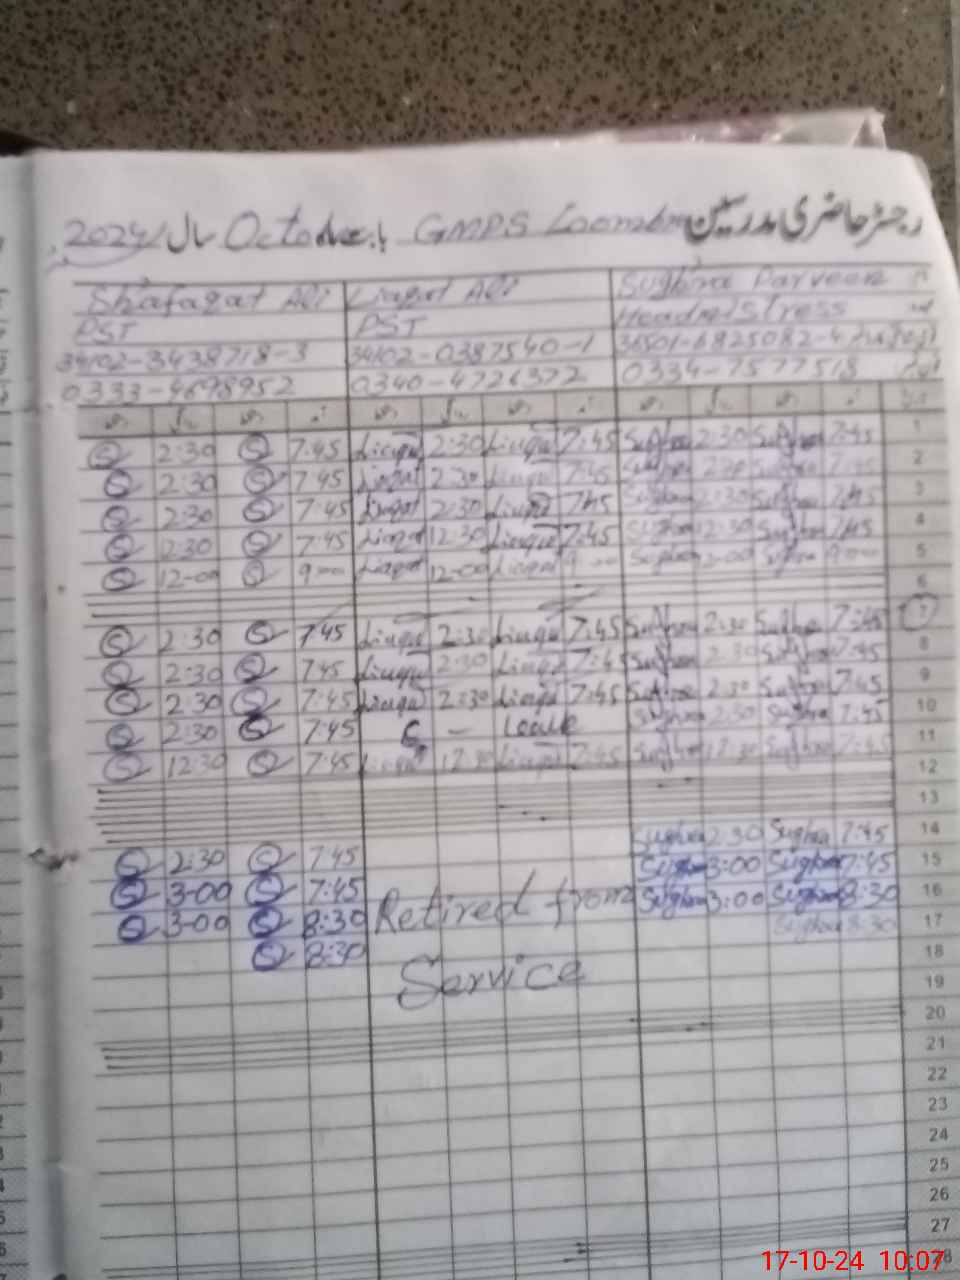 رجسٹر حاضری مدرسین GMPS Loomba بابت October سال 2024
Shafaqat Ali Liaqat Ali Sughra Parveen
PST PST Headmistress
34102-3438718-3 34102-0387540-1
0333-4698952 0340-4726372 0334-7577518
2:30 7:45 Liaqat 2:30 Liaqat 7:45 Sughra 2:30 Sughra 7:45 1
2:30 7:45 Liaqat 2:30 Liaqat 7:45 Sughra 2:30 Sughra 7:45 2
2:30 7:45 Liaqat 2:30 Liaqat 7:45 Sughra 2:30 Sughra 7:45 3
12:30 7:45 Liaqat 12:30 Liaqat 7:45 Sughra 12:30 Sughra 7:45 4
12-00 9-00 Liaqat 12-00 Liaqat 9-00 Sughra 12-00 Sughra 9-00 5
6
2:30 7:45 Liaqat 2:30 Liaqat 7:45 Sughra 2:30 Sughra 7:45 7
2:30 7:45 Liaqat 2:30 Liaqat 7:45 Sughra 2:30 Sughra 7:45 8
2:30 7:45 Liaqat 2:30 Liaqat 7:45 Sughra 2:30 Sughra 7:45 9
2:30 7:45 C - Leave Sughra 2:30 Sughra 7:45 10
12:30 7:45 Liaqat 12:30 Liaqat 7:45 Sughra 12:30 Sughra 7:45 11
12
13
2:30 7:45 Sughra 2:30 Sughra 7:45 14
3-00 7:45 Sughra 3:00 Sughra 7:45 15
3-00 8:30 Retired from Sughra 3:00 Sughra 8:30 16
8:30 Sughra 8:30 17
Service 18
19
20
21
22
23
24
25
26
27
28
17-10-24 10:07